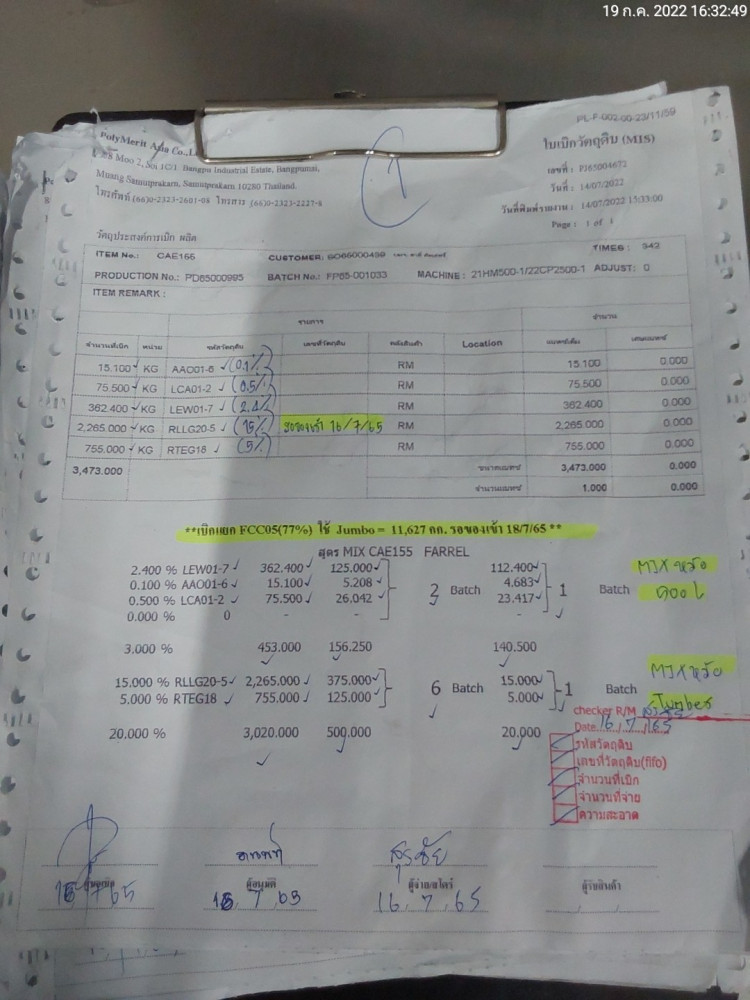 19 ก.ค. 2022 16:32:49
PL-F-002-00-23/11/59
PolyMerit Asia Co.,L
Moo 2, Soi 1C/1 Bangpu Industrial Estate, Bangpumai,
Muang Samutprakarn, Samutprakarn 10280 Thailand.
โทรศัพท์ (66)0-2323-2601-08 โทรสาร (66)0-2323-2227-8
ใบเบิกวัตถุดิบ (MIS)
เลขที่ : PJ65004672
วันที่ : 14/07/2022
วันที่พิมพ์รายงาน : 14/07/2022 15:33:00
Page : 1 of 1
วัตถุประสงค์การเบิก ผลิต
ITEM No.: CAE155 CUSTOMER: SO65000499 TIMES : 342
PRODUCTION No.: PD65000995 BATCH No.: FP65-001033 MACHINE : 21HM500-1/22CP2500-1 ADJUST: 0
ITEM REMARK :
รายการ จำนวน
จำนวนที่เบิก หน่วย รหัสวัตถุดิบ เลขที่วัตถุดิบ คลังสินค้า Location แบทซ์เต็ม เศษแบทซ์
15.100 KG AAO01-6 (0.1%) RM 15.100 0.000
75.500 KG LCA01-2 (0.5%) RM 75.500 0.000
362.400 KG LEW01-7 (2.4%) RM 362.400 0.000
2,265.000 KG RLLG20-5 (15%) รอของเข้า 16/7/65 RM 2,265.000 0.000
755.000 KG RTEG18 (5%) RM 755.000 0.000
3,473.000 ขนาดแบทซ์ 3,473.000 0.000
จำนวนแบทซ์ 1.000 0.000
**เบิกแยก FCC05(77%) ใช้ Jumbo = 11,627 กก. รอของเข้า 18/7/65 **
สูตร MIX CAE155 FARREL
2.400 % LEW01-7 362.400 125.000 112.400
0.100 % AAO01-6 15.100 5.208 2 Batch 4.683 1 Batch
0.500 % LCA01-2 75.500 26.042 23.417
0.000 % 0 - -
MIX หม้อ
500 L
3.000 % 453.000 156.250 140.500
15.000 % RLLG20-5 2,265.000 375.000 6 Batch 15.000 1 Batch
5.000 % RTEG18 755.000 125.000 5.000
MIX หม้อ
20.000 % 3,020.000 500.000 20.000
checker R/M
Date 16/7/65
รหัสวัตถุดิบ
เลขที่วัตถุดิบ(fifo)
จำนวนที่เบิก
จำนวนที่จ่าย
ความสะอาด
สุรชัย
ผู้อนุมัติ ผู้จ่าย/สโตร์ ผู้รับสินค้า
16 7 65 16 7 65 16 7 65